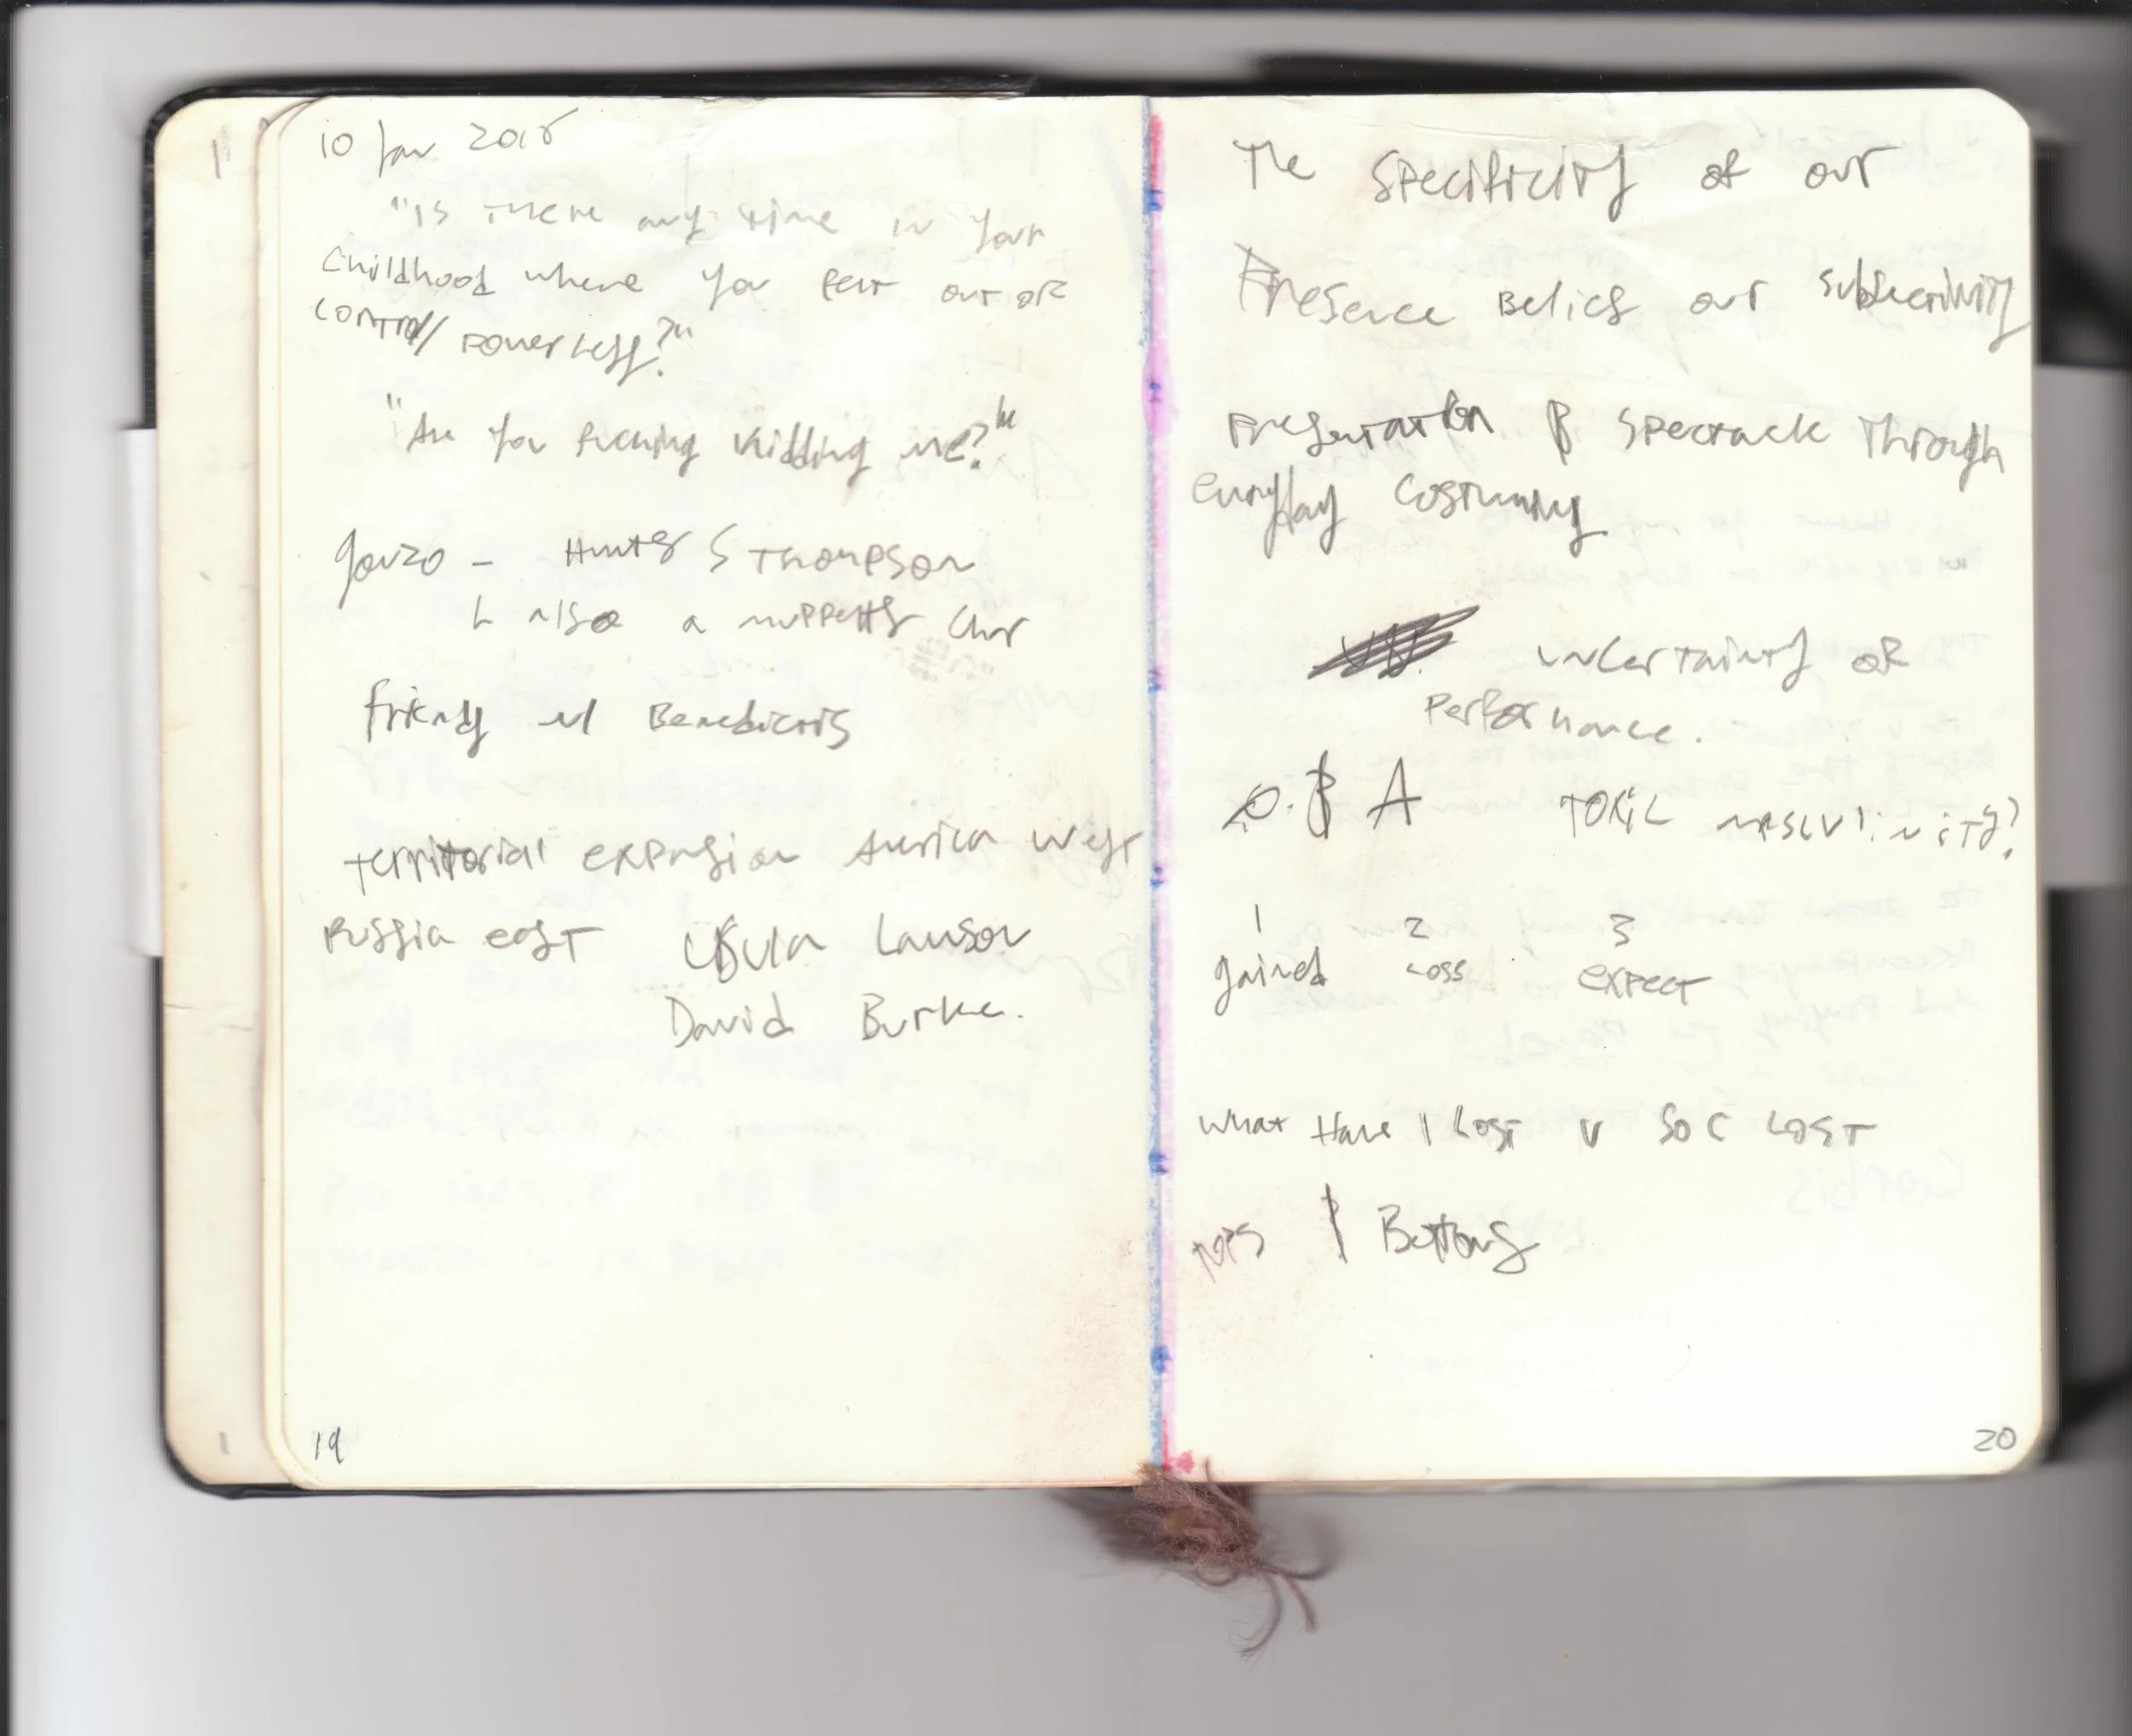 10 Jan 2018
"Is there any time in your
childhood where you felt out of
control/powerless?"
"Are you fucking kidding me?"
Gonzo - Hunter S Thompson
L also a muppets char
friends w/ Benedicts
territorial expansion America West
Russia east Ursula Lawson
David Burke.
19
The specificity of our
Presence Belies our subjectivity
Presentation & spectacle through
everyday costuming
uncertainty of
Performance.
Q. & A Toxic masculinity?
1 2 3
gained loss expect
What Have I Lost v Soc Lost
Tops & Bottoms
20